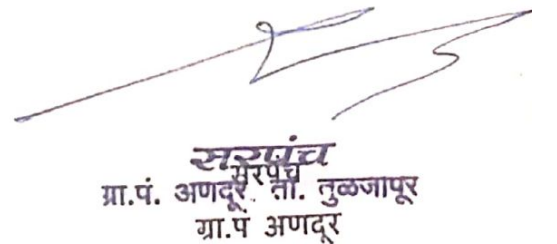 सरपंच
सरपंच
ग्रा.पं. अणदूर ता. तुळजापूर
ग्रा.पं अणदूर